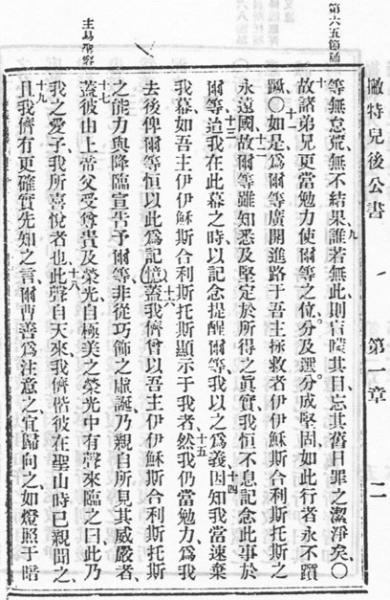 撇特兒後公書 第一章 二
第六五節誦
主易聖容
等無怠荒、無不結果、九誰若無此則盲瞶其目、忘其舊日罪之潔淨矣、〇
十故諸弟兄更當勉力使爾等之位分及選分成堅固、如此行者永不躓
蹶〇十一如是爲爾等廣開進路于吾主拯救者伊伊穌斯合利斯托斯之
永遠國、十二故爾等雖知悉及堅定於所得之眞實、我恒不息記念此事於
爾等、十三迨我在此幕之時、以記念提醒爾等、我以之爲義、十四因知我當速棄
我幕、如吾主伊伊穌斯合利斯托斯顯示于我者、十五然我仍當勉力、爲我
去後俾爾等恒以此爲記憶、十六蓋我儕曾以吾主伊伊穌斯合利斯托斯
之能力與降臨宣告予爾等、非從巧飾之虛誕、乃親自所見其威嚴者、
十七蓋彼由上帝父受尊貴及榮光、自極美之榮光中有聲來臨之曰、此乃
我之愛子我所喜悅者也、十八此聲自天來、我儕偕彼在聖山時已親聞之、
十九且我儕有更確實先知之言、爾曹善爲注意之、宜歸向之、如燈照于暗